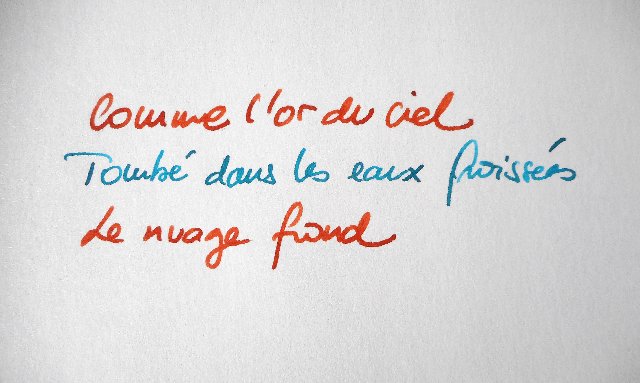 Comme l'or du ciel
Tombé dans les eaux froissées
Le nuage frond